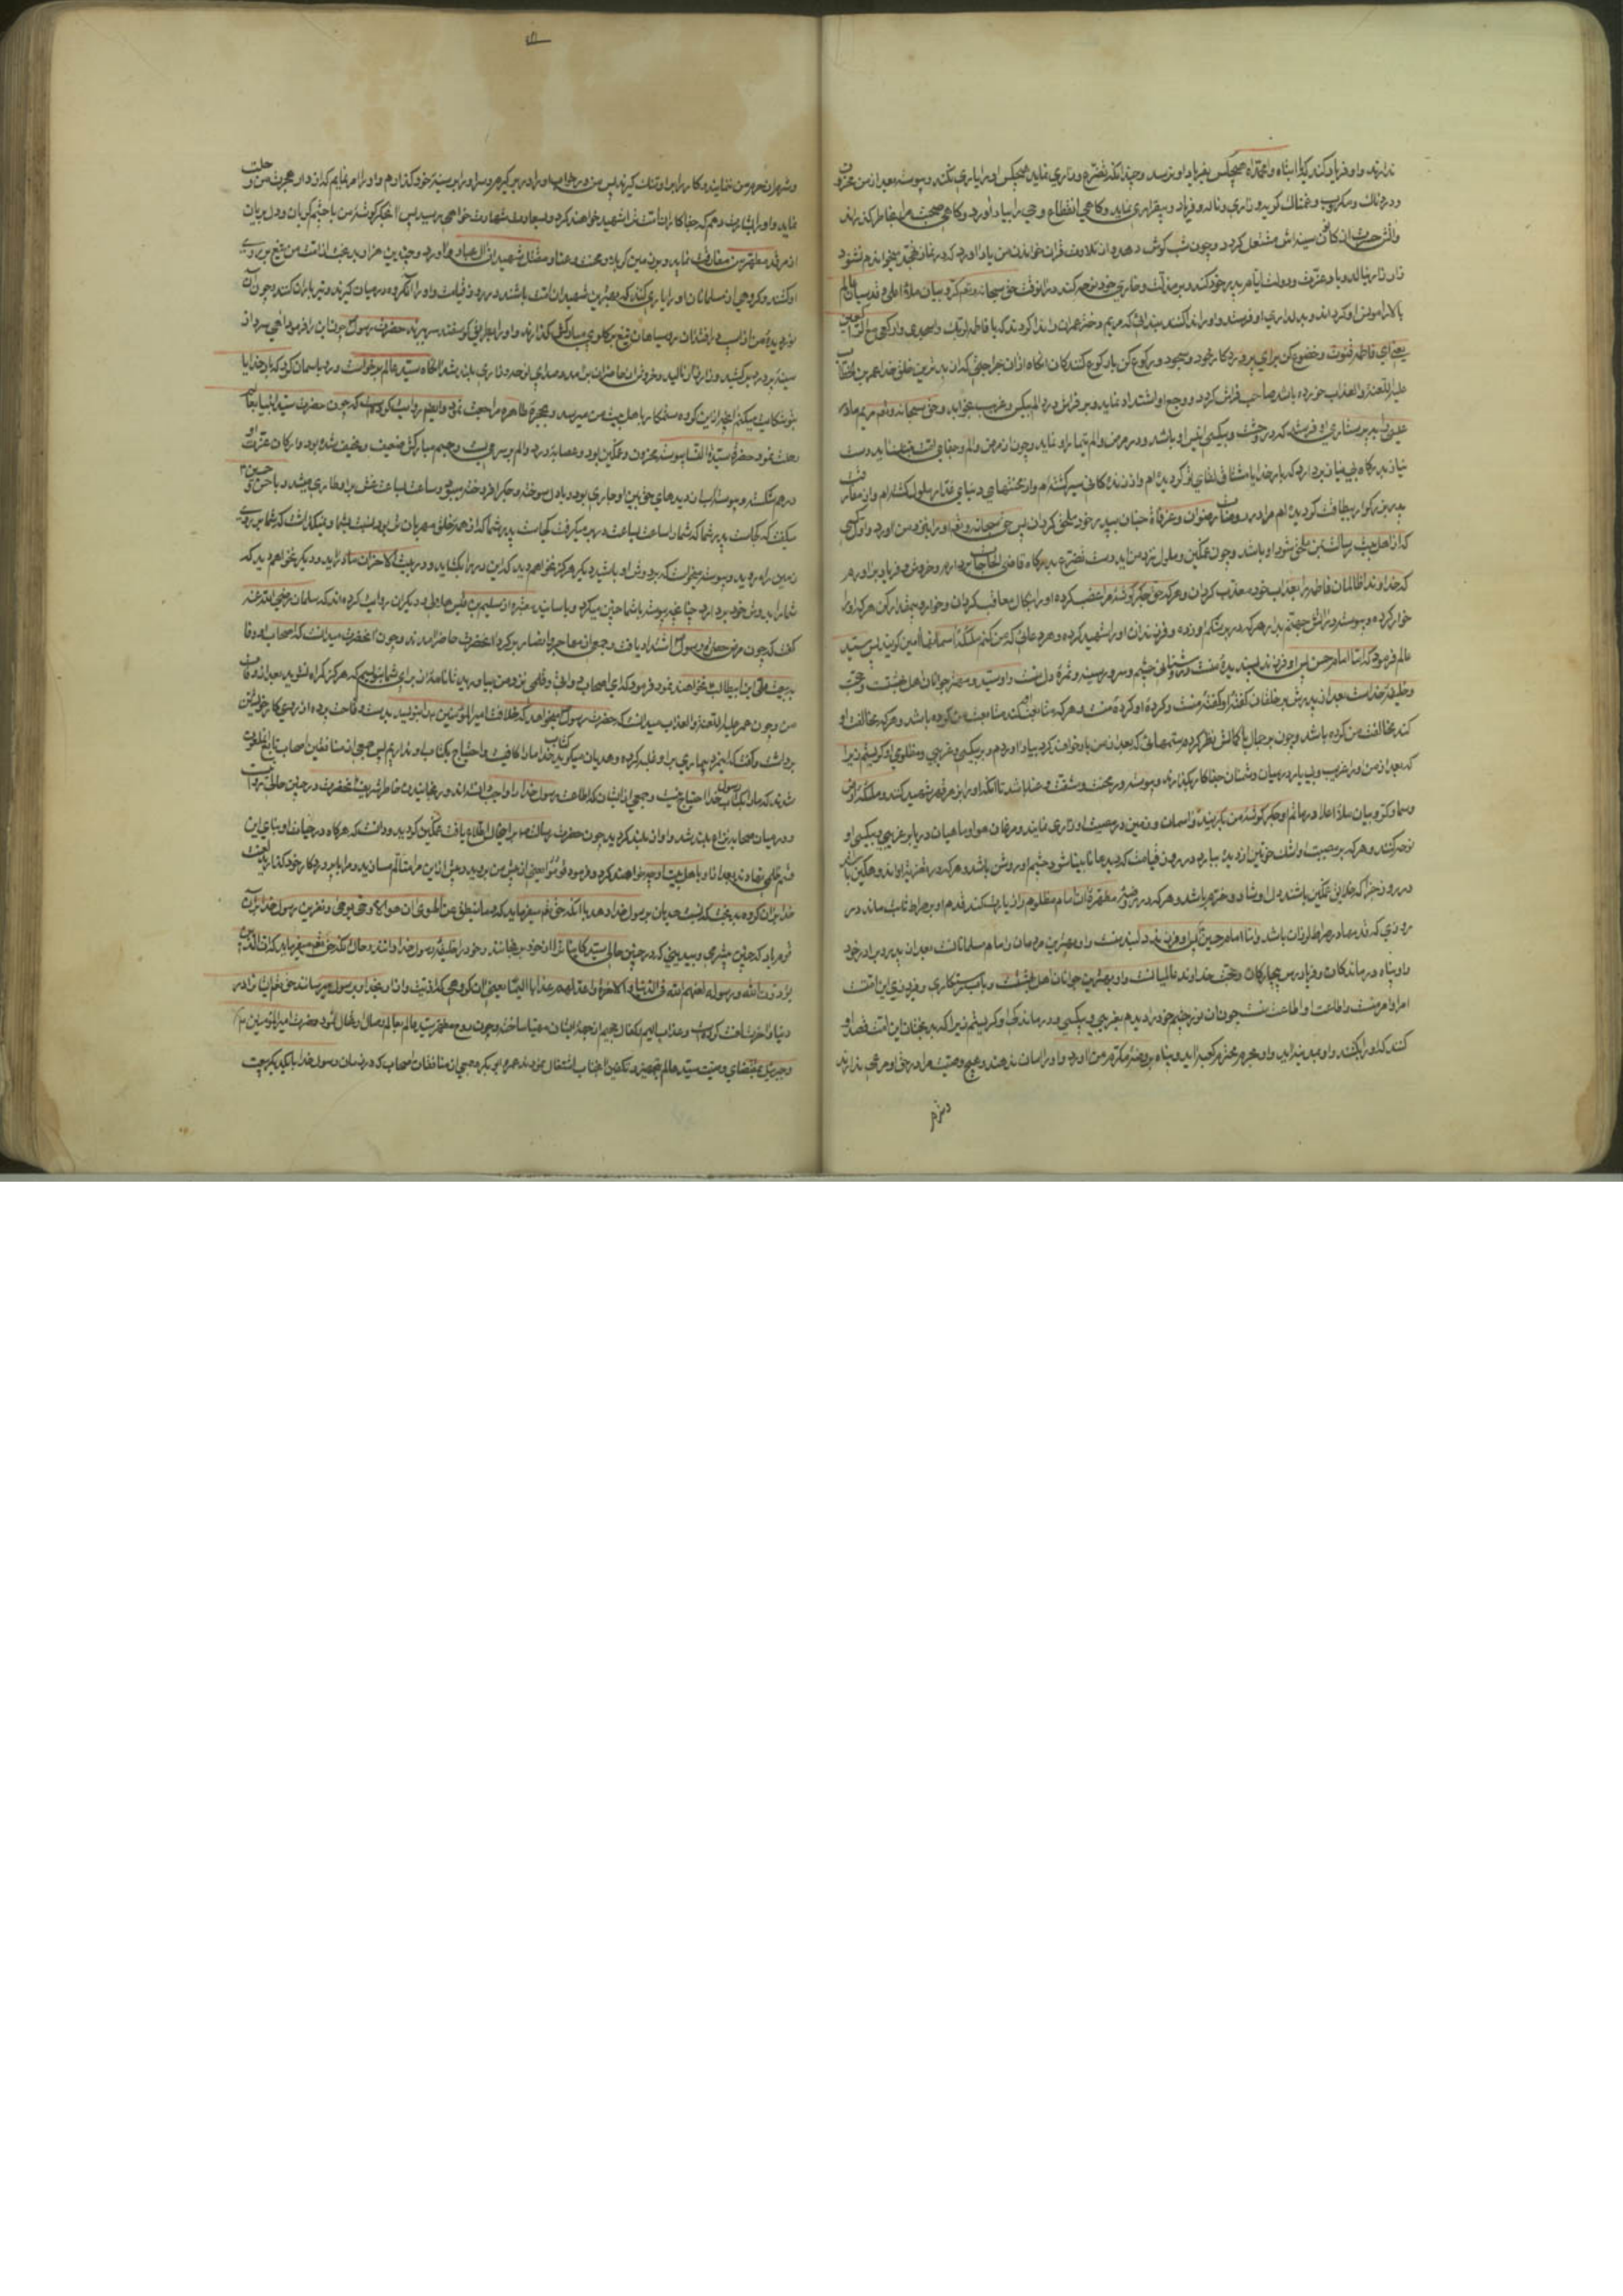 ندارند و او فریاد کند که وا ابتاه وا محمداه هیچکس بفریاد او نرسد و چندانکه تضرع و زاری نماید هیچکس او را یاری نکند و پیوسته بعد از من محزون
و دردناک و مکروب و غمناک گوید و زاری و ناله و فریاد و بیقراری نماید و گاهی انقطاع وحی را بیاد آورد و گاهی صحبت مرا بخاطر گذراند
و آتش حسرت از کانون سینه‌اش مشتعل گردد و چون شب گوش دهد و از تلاوت قرآن خواندن من یاد آورد که در نماز تهجد میخواندم نشنود
زار زار بناله و یاد عزت و دولت ایام پدر خود کند و بر مذلت و خواری خود نوحه کند در آنوقت حق سبحانه و تعالی کروبیان ملاء اعلی و قدسیان عالم
بالا را مونس او گرداند و بدلداری او فرستد و او را ندا کنند بندائی که مریم دختر عمران را ندا کردند که یا فاطمه اقنتی لربک واسجدی وارکعی مع الراکعین
یعنی ای فاطمه قنوت و خضوع کن برای پروردگار خود و سجود و رکوع کن با رکوع کنندگان آنگاه از آن جراحتی که از بدترین خلق خدا عمر بن الخطاب
علیه اللعنة والعذاب خورده باشد صاحب فراش گردد و وجع او اشتداد نماید و بر فراش درد و الم بیکس و غریب بخوابد و حق سبحانه و تعالی مریم مادر
عیسی را به پرستاری او فرستد که در وحشت و بیکسی انیس او باشد و در مرض و الم تیمار او نماید و چون از مرض و الم و جفای امت متنفر نماید دست
نیاز بدرگاه بی نیاز بردارد که بار خدایا مشتاق لقای تو گردیده‌ام و از زندگانی سیر گشته‌ام و از محنتهای دنیای غدار ملول گشته‌ام و از مفارقت
پدر بزرگوار بیطاقت گردیده‌ام مرا در روضات رضوان و غرفات جنان به پدر خود ملحق گردان پس حق سبحانه و تعالی او را بنزد من آورد و اول کسی
که از اهل بیت رسالت بمن ملحق شود او باشد و چون غمگین و ملول نزد من آید دست تضرع بدرگاه قاضی الحاجات بردارم و خروش و فریاد برآورم
که خداوندا ظالمان فاطمه را بعذاب خود معذب گردان و هر که حق جگر گوشه مرا غصب کرده او را بنکال معاقب گردان و خوار و بیمقدار کن هر که او را
خوار کرده و پیوسته در آتش جهنم بدار هر که در بر شکم او زده و فرزند او را شهید کرده و هر دعائی که من کنم ملائکه آسمانها آمین گویند پس سید
عالم فرمود که اما امام حسن پس او فرزند پسندیده منست و روشنائی چشم و سرور سینه و ثمره دل منست و اوست سید و مهتر جوانان اهل بهشت و حجت
و خلیفه خداست بعد از پدرش بر خلقان گفته او گفته منست و کرده او کرده منست و هر که متابعت او کند متابعت من کرده باشد و هر که مخالفت او
کند مخالفت من کرده باشد و چون بر جمال با کمالش نظر کردم ستمهائی که بعد از من با او خواهند کرد بیاد آوردم و بر بیکسی و غریبی و مظلومی او گریستم زیرا
که بعد از من او را غریب و بی یار در میان دشمنان جفاکار بگذارند و پیوسته در محنت و مشقت و عنا باشد تا آنکه او را بزهر قهر شهید کنند و ملائکه ارض
و سما و کروبیان ملاء اعلا در ماتم او جگر گوشه من بگریند و آسمان و زمین در مصیبت او زاری نمایند و مرغان هوا و ماهیان دریا بر غریبی و بیکسی او
نوحه کنند و هر که بر مصیبت او اشک خونین از دیده ببارد در روز قیامت که دیده‌ها نابینا شود چشم او روشن باشد و هر که در تعزیه او اندوهگین باشد
در روز جزا که خلایق غمگین باشند دل او شاد و خرم باشد و هر که در روضه مطهره آن امام مظلوم را زیارت کند قدم او بر صراط ثابت ماند در
روزی که قدمها در صراط لرزان باشد و اما امام حسین پس او فرزند دلبند منست و او بهترین مردمان و امام مسلمانانست بعد از پدر و برادر خود
و او پناه درماندگان و فریادرس بیچارگان و حجت خداوند عالمیانست و او بهترین جوانان اهل بهشتست و باب رستگاری و فیروزی این امتست
امر او امر منست و اطاعت او اطاعت منست چون آن نور چشم خود را دیدم بغریبی و بیکسی و درماندگی او گریستم زیرا که بدبختان این امت قصد او
کنند که او را بکشند و او بمدینه آید و او بحرم محترم کعبه آید و پناه بروضه مکرم من آورد و او را امان ندهند و هیچ وصیت مرا در حق او مرعی ندارند
و شهر
و شهر از حرم من نمایند و کار را بر او تنگ گیرند پس من در خواب او را در بر گیرم و سر او را بر سینه خود گذارم و او را امر نمایم که از دار هجرت من رحلت
نماید و او را بشارت دهم که جفاکاران امت ترا شهید خواهند کرد و بسعادت شهادت خواهی رسید پس آن جگر گوشه من با چشم گریان و دل بریان
از مرقد مطهر من مفارقت نماید و بزمین کربلا و محنت و عنا و مقتل شهید آل عبا رو آورد و چندین هزار بدبخت از امت من تیغ بر روی
او کشند و گروهی از مسلمانان او را یاری کنند که بهترین شهیدان امت باشند در روز قیامت و او را آن گروه در میان گیرند و تیرباران کنند و چون آن
نور دیده من از اسب درافتد آن روسیاهان تیغ بر گلوی مبارکش گذارند و او را بطریق گوسفند سر ببرند حضرت رسول چون این را فرمود آهی سرد از
سینه پر درد برکشید و زار زار نالید و خروش از حاضران برآمد و صدای نوحه و زاری بلند شد آنگاه سید عالم برخاست و رو بآسمان کرد که بار خدایا
بتو شکایت میکنم آنچه از این گروه ستمکار باهل بیت من میرسد و بحجره طاهره مراجعت نمود و ایضا روایت کرده‌است که چون حضرت سید انبیا بعالم بقا
رحلت نمود حضرت سیدة النسا پیوسته محزون و غمگین بود و عصابه درد و الم بر سر می‌بست و جسم مبارکش ضعیف و نحیف شده بود و ارکان عزت او
در هم شکسته و پیوسته آب از دیده‌های حق بین او جاری بود و با دل سوخته و جگر افروخته میسوخت و ساعت بساعت غش بر او طاری میشد و با حسن و حسین
میگفت که کجاست پدر شما که شما را ساعت بساعت در بر میگرفت کجاست پدر شما که از همه خلق مهربان تر بود نسبت بشما و نمیگذاشت که شما بر روی
زمین راه روید و پیوسته میخواست که بر دوش او باشید دیگر هرگز نخواهم دید که این در را بگشاید و در بیت الاحزان ما درآید و دیگر نخواهم دید که
شما را بدوش خود بردارد چنانچه پیوسته با شما چنین میکرد و باسانید معتبره از سلیم بن قیس هلالی و دیگران روایت کرده‌اند که سلمان رضی الله عنه
گفت که چون مرض حضرت رسول اشتداد یافت و جمعی از مهاجر و انصار بر گرد آنحضرت حاضر آمدند و چون آنحضرت میدانست که اصحاب او وفا
به بیعت علی ابن ابیطالب نخواهند نمود فرمود که ای اصحاب دواتی و قلمی نزد من بیاورید تا نامه‌ای از برای شما بنویسم که هرگز گمراه نشوید بعد از وفات
من و چون عمر علیه اللعنة والعذاب میدانست که حضرت رسول میخواهد که خلافت امیرالمؤمنین را بنویسد بدست وقاحت پرده از روی کار خویش
برداشت و گفت که این مرد بیماری بر او غلبه کرده و هذیان میگوید کتاب خدا ما را کافیست و احتیاج بکتاب او نداریم پس جمعی از منافقین اصحاب تابع آن ملعون
شدند که ما را بکتاب رسول خدا احتیاج نیست و جمعی از ایشان که اطاعت رسول خدا را واجب میدانستند و رنجانیدن خاطر شریف آنحضرت در چنین حالتی حرام
و در میان صحابه نزاع بلند شد و آواز بلند گردید چون حضرت رسالت بر احوال اطلاع یافت غمگین گردید و دانست که هرگاه در حیات او بنای این
فتنه
خدا بر آن گروه بدبخت که نسبت هذیان برسول خدا دهد با آنکه حق تعالی میفرماید که وما ینطق عن الهوی ان هو الا وحی یوحی و نفرین رسول خدا بر آن
قوم باد که
یؤذون الله ورسوله لعنهم الله فی الدنیا والآخرة واعد لهم عذابا الیما یعنی آن گروهی که اذیت و آزار بخدا و برسول میرسانند حق تعالی ایشان را در
دنیا و آخرت لعنت کرده‌است و عذاب الیم و نکال جحیم از جهت ایشان مهیا ساخته و چون روح مطهر سید عالم بعالم وصال و انتقال نمود حضرت امیرالمؤمنین
و جبرئیل بمقتضای وصیت سید عالم بتجهیز و تکفین آنجناب اشتغال نمودند عمر و ابی بکر و جمعی از منافقان اصحاب که در زمان رسول خدا با یکدیگر بیعت